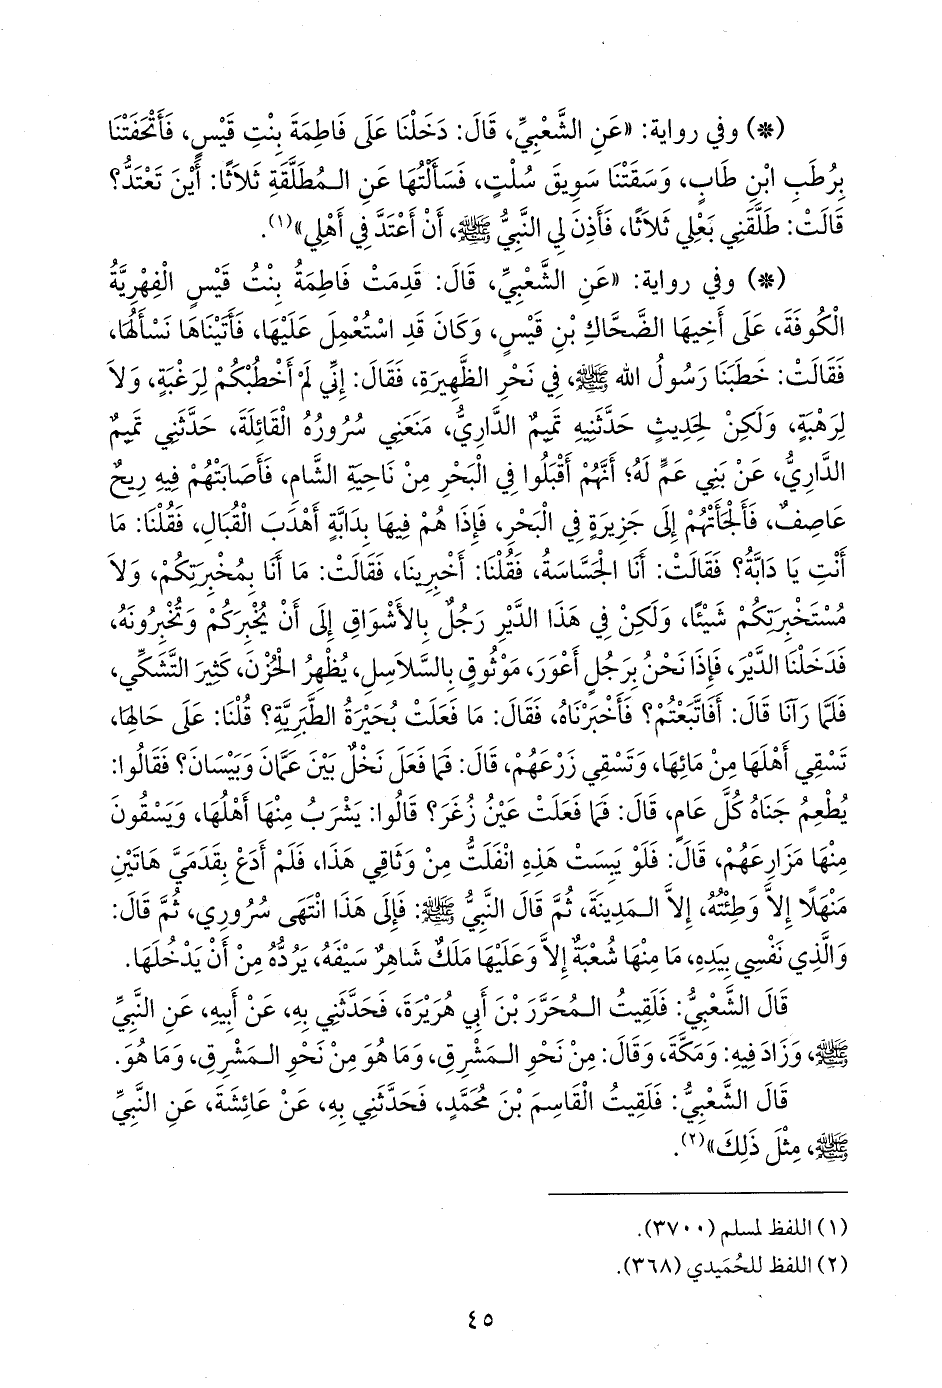 (*) وفي رواية: «عَنِ الشَّعْبِيِّ، قَالَ: دَخَلْنَا عَلَى فَاطِمَةَ بِنْتِ قَيْسٍ، فَأَتْحَفَتْنَا
بِرُطَبِ ابْنِ طَابٍ، وَسَقَتْنَا سَوِيقَ سُلْتٍ، فَسَأَلْتُهَا عَنِ الْمُطَلَّقَةِ ثَلَاثًا: أَيْنَ تَعْتَدُّ؟
قَالَتْ: طَلَّقَنِي بَعْلِي ثَلَاثًا، فَأَذِنَ لِي النَّبِيُّ ﷺ، أَنْ أَعْتَدَّ فِي أَهْلِي»(١).
(*) وفي رواية: «عَنِ الشَّعْبِيِّ، قَالَ: قَدِمَتْ فَاطِمَةُ بِنْتُ قَيْسٍ الْفِهْرِيَّةُ
الْكُوفَةَ، عَلَى أَخِيهَا الضَّحَّاكِ بْنِ قَيْسٍ، وَكَانَ قَدِ اسْتُعْمِلَ عَلَيْهَا، فَأَتَيْنَاهَا نَسْأَلُهَا،
فَقَالَتْ: خَطَبَنَا رَسُولُ الله ﷺ، فِي نَحْرِ الظَّهِيرَةِ، فَقَالَ: إِنِّي لَمْ أَخْطُبْكُمْ لِرَغْبَةٍ، وَلَا
لِرَهْبَةٍ، وَلَكِنْ لِحَدِيثٍ حَدَّثَنِيهِ تَمِيمٌ الدَّارِيُّ، مَنَعَنِي سُرُورُهُ الْقَائِلَةَ، حَدَّثَنِي تَمِيمٌ
الدَّارِيُّ، عَنْ بَنِي عَمٍّ لَهُ؛ أَنَّهُمْ أَقْبَلُوا فِي الْبَحْرِ مِنْ نَاحِيَةِ الشَّامِ، فَأَصَابَتْهُمْ فِيهِ رِيحٌ
عَاصِفٌ، فَأَلْجَأَتْهُمْ إِلَى جَزِيرَةٍ فِي الْبَحْرِ، فَإِذَا هُمْ فِيهَا بِدَابَّةٍ أَهْدَبَ الْقُبَالِ، فَقُلْنَا: مَا
أَنْتِ يَا دَابَّةُ؟ فَقَالَتْ: أَنَا الْجَسَّاسَةُ، فَقُلْنَا: أَخْبِرِينَا، فَقَالَتْ: مَا أَنَا بِمُخْبِرَتِكُمْ، وَلَا
مُسْتَخْبِرَتِكُمْ شَيْئًا، وَلَكِنْ فِي هَذَا الدَّيْرِ رَجُلٌ بِالأَشْوَاقِ إِلَى أَنْ يُخْبِرَكُمْ وَتُخْبِرُونَهُ،
فَدَخَلْنَا الدَّيْرَ، فَإِذَا نَحْنُ بِرَجُلٍ أَعْوَرَ، مَوْثُوقٍ بِالسَّلَاسِلِ، يُظْهِرُ الْحُزْنَ، كَثِيرَ التَّشَكِّي،
فَلَمَّا رَآنَا قَالَ: أَفَاتَّبَعْتُمْ؟ فَأَخْبَرْنَاهُ، فَقَالَ: مَا فَعَلَتْ بُحَيْرَةُ الطَّبَرِيَّةِ؟ قُلْنَا: عَلَى حَالِهَا،
تَسْقِي أَهْلَهَا مِنْ مَائِهَا، وَتَسْقِي زَرْعَهُمْ، قَالَ: فَمَا فَعَلَ نَخْلٌ بَيْنَ عَمَّانَ وَبَيْسَانَ؟ فَقَالُوا:
يُطْعِمُ جَنَاهُ كُلَّ عَامٍ، قَالَ: فَمَا فَعَلَتْ عَيْنُ زُغَرَ؟ قَالُوا: يَشْرَبُ مِنْهَا أَهْلُهَا، وَيَسْقُونَ
مِنْهَا مَزَارِعَهُمْ، قَالَ: فَلَوْ يَبِسَتْ هَذِهِ انْفَلَتُّ مِنْ وَثَاقِي هَذَا، فَلَمْ أَدَعْ بِقَدَمَيَّ هَاتَيْنِ
مَنْهَلًا إِلاَّ وَطِئْتُهُ، إِلاَّ الْمَدِينَةَ، ثُمَّ قَالَ النَّبِيُّ ﷺ: فَإِلَى هَذَا انْتَهَى سُرُورِي، ثُمَّ قَالَ:
وَالَّذِي نَفْسِي بِيَدِهِ، مَا مِنْهَا شُعْبَةٌ إِلاَّ وَعَلَيْهَا مَلَكٌ شَاهِرٌ سَيْفَهُ، يَرُدُّهُ مِنْ أَنْ يَدْخُلَهَا.
قَالَ الشَّعْبِيُّ: فَلَقِيتُ الْمُحَرَّرَ بْنَ أَبِي هُرَيْرَةَ، فَحَدَّثَنِي بِهِ، عَنْ أَبِيهِ، عَنِ النَّبِيِّ
ﷺ، وَزَادَ فِيهِ: وَمَكَّةَ، وَقَالَ: مِنْ نَحْوِ الْمَشْرِقِ، وَمَا هُوَ مِنْ نَحْوِ الْمَشْرِقِ، وَمَا هُوَ.
قَالَ الشَّعْبِيُّ: فَلَقِيتُ الْقَاسِمَ بْنَ مُحَمَّدٍ، فَحَدَّثَنِي بِهِ، عَنْ عَائِشَةَ، عَنِ النَّبِيِّ
ﷺ، مِثْلَ ذَلِكَ»(٢).
(١) اللفظ لمسلم (٣٧٠٠).
(٢) اللفظ للحُمَيدي (٣٦٨).
٤٥